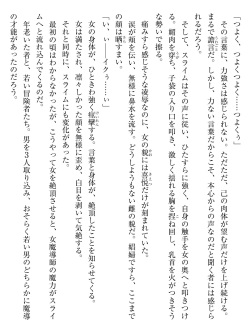 「つよく、つよく、つよくつよく、つよくぅ」
その言葉に、力強さは感じられない。ただただ、己の肉体が望む声だけを上げ続ける。
まるで虚言だ。しかし、力ない言葉だからこそ、本心からの声なのだと聞く者には感じら
れる。
そして、スライムはその声に従い、ひたすらに突く。自身の触手を女の奥へと叩きつけ
る。膣内を穿ち、子袋の入り口を叩き、激しく揺れる胸を捏ね回し、乳首を火がつきそう
な勢いで擦る。
痛みすら感じそうな凌辱なのに、女の貌には喜悦だけが刻まれていた。
涙が頬を伝い、無様に鼻水を流す。どうしようもない雌の貌だ。娼婦ですら、ここまで
の顔は晒すまい。
「い、い――イクぅ……い」
女の身体が、ひときわ強く痙攣する。言葉と身体が、絶頂したことを知らせてくる。
女は満たされ、凛々しかった顔を無様に歪め、白目を剥いて気絶する。
それと同時に、スライムにも変化があった。
最初の頃はわからなかったが、こうやって女を絶頂させると、女魔導師の魔力がスライ
ムへと流れ込んでくるのだ。
年老いた者と、若い冒険者たち、男を3人取り込み、おそらく若い男のどちらかに魔導
の才能があったのだろう。